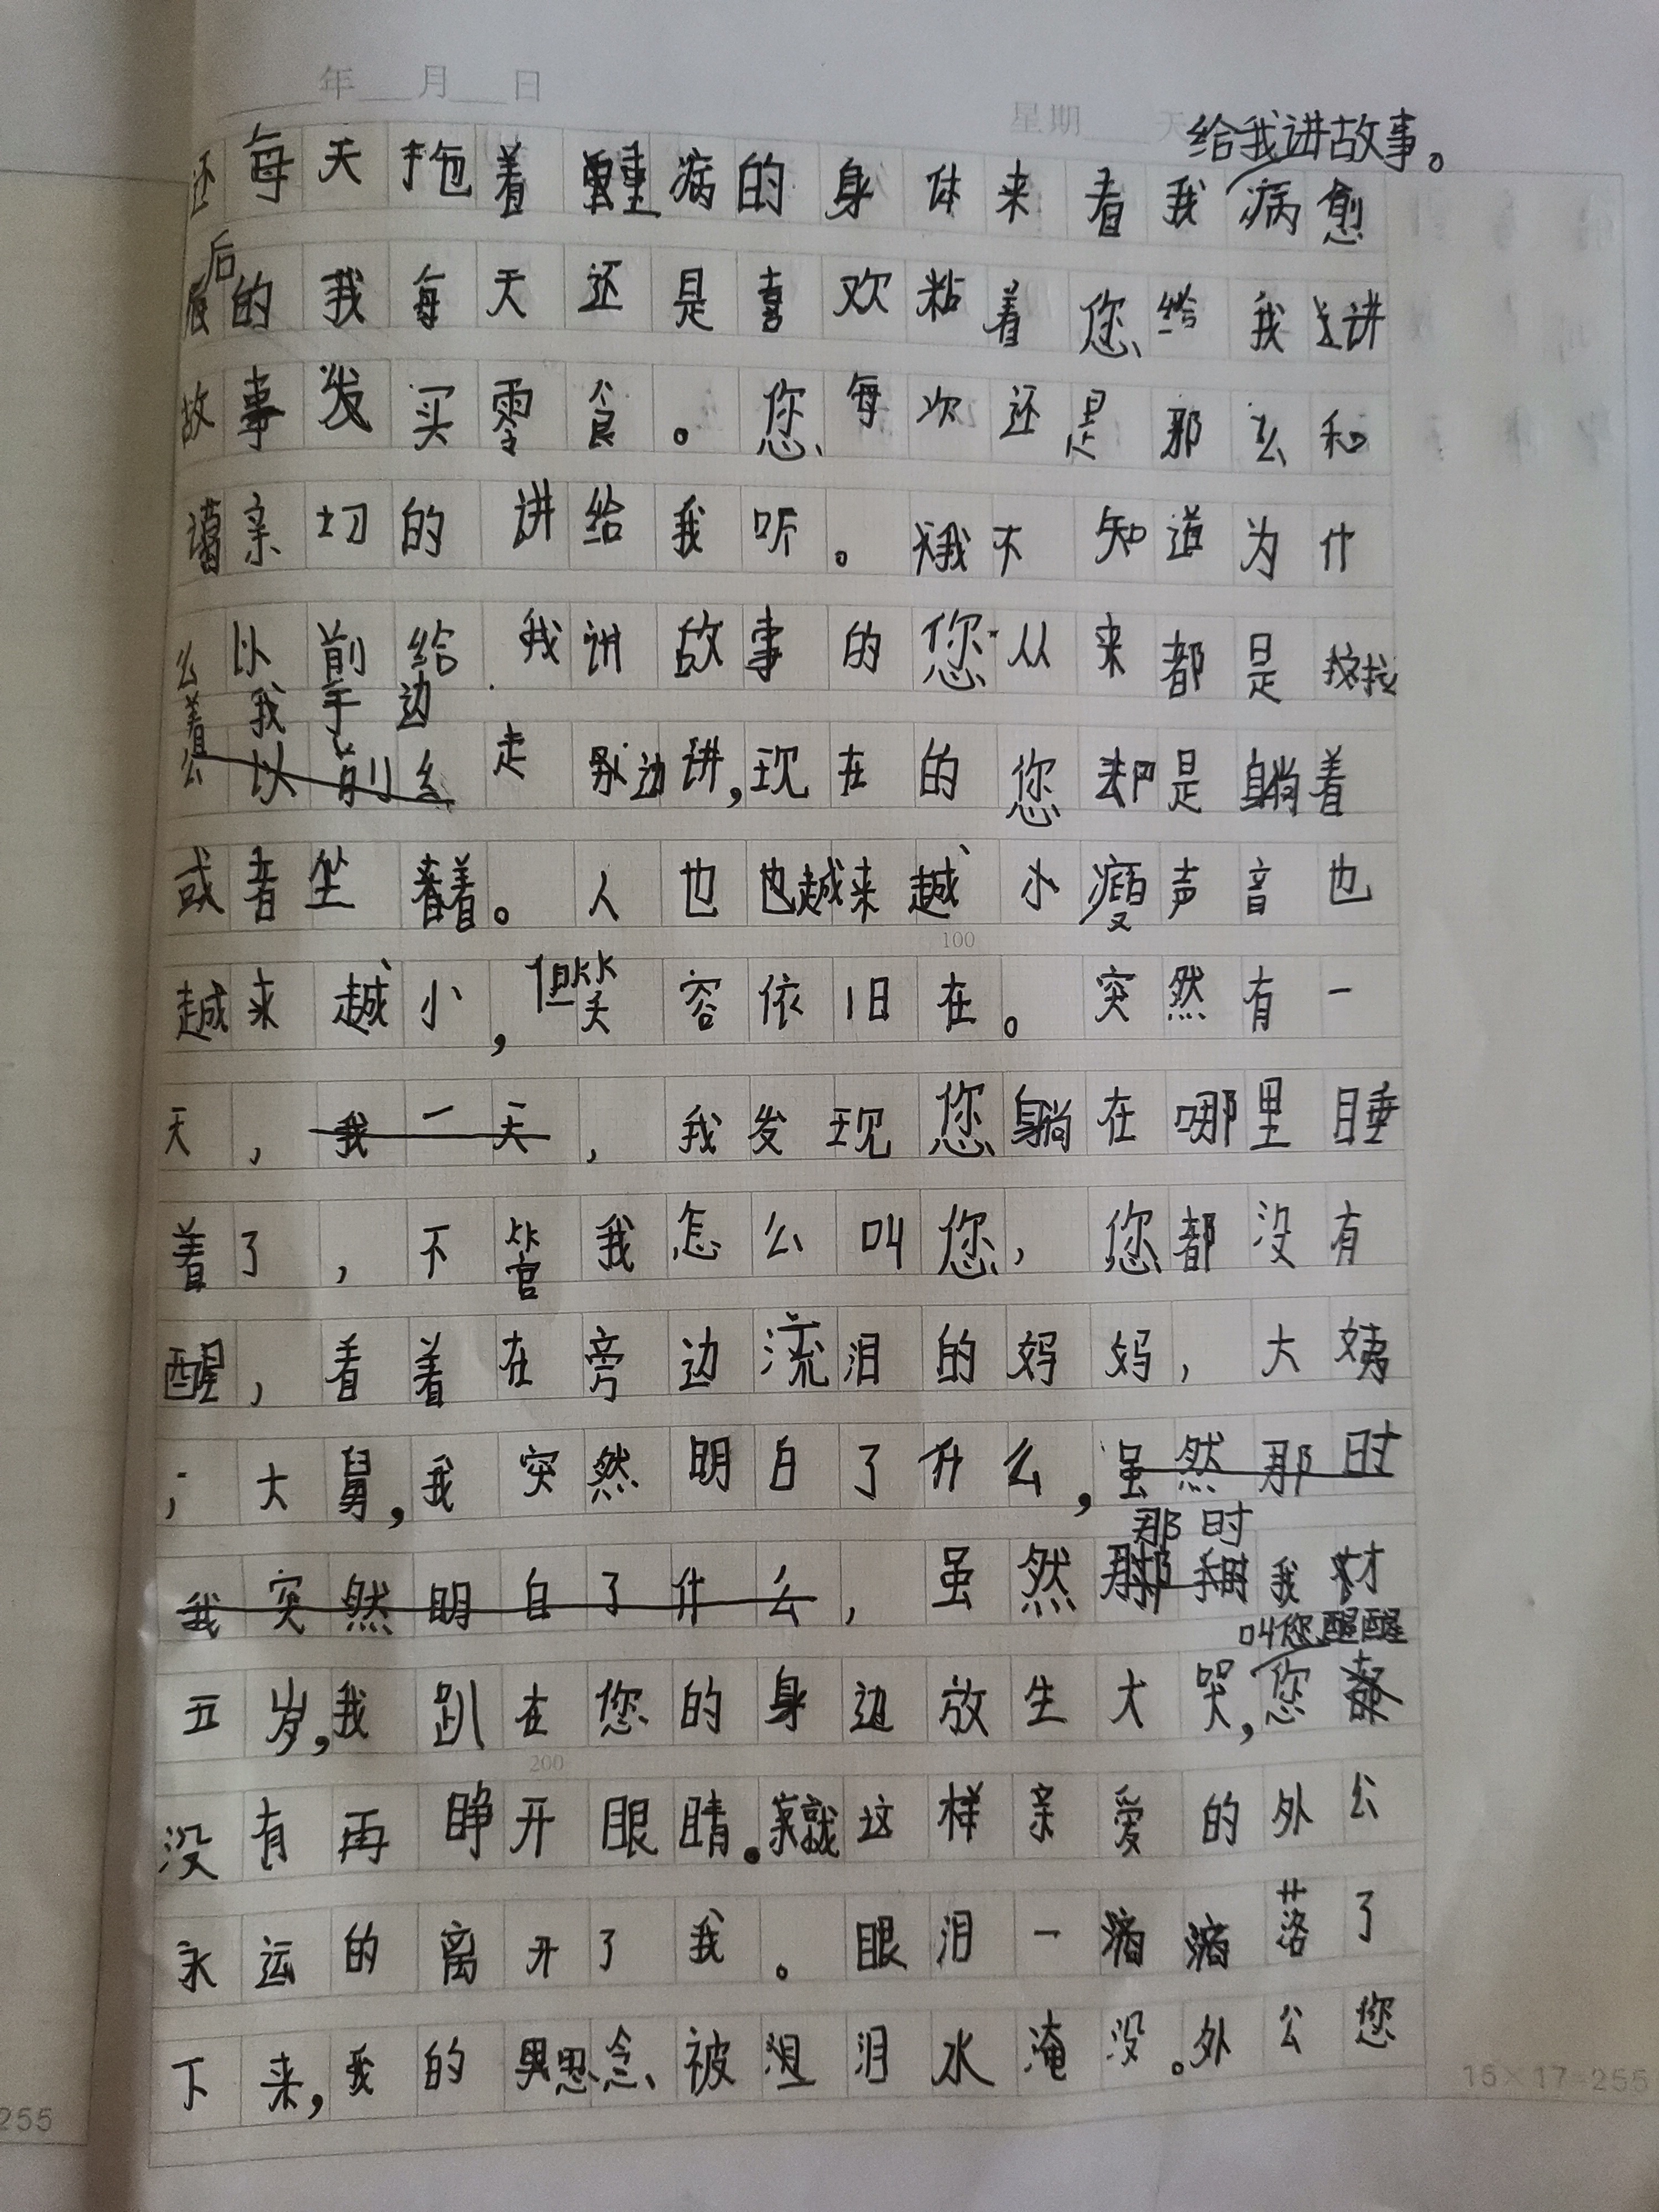 年 月 日
星期 天
给我讲故事。
还每天拖着重病的身体来看我病愈
后的我每天还是喜欢粘着您给我讲
故事买零食。您每次还是那么和
蔼亲切的讲给我听。我不知道为什
么以前给我讲故事的您从来都是拉
着我手边
么以前给走边讲,现在的您却是躺着
或者坐着。人也越来越小瘦声音也
越来越小,但笑容依旧在。突然有一
天,我一天,我发现您躺在哪里睡
着了,不管我怎么叫您,您都没有
醒,看着在旁边流泪的妈妈,大姨
;大舅,我突然明白了什么,虽然那时
那时
我突然明白了什么,虽然我才
叫您醒醒
五岁,我趴在您的身边放生大哭,您
没有再睁开眼睛。就这样亲爱的外公
永运的离开了我。眼泪一滴滴落了
下来,我的思念被泪水淹没。外公您
100
200
15×17=255
255